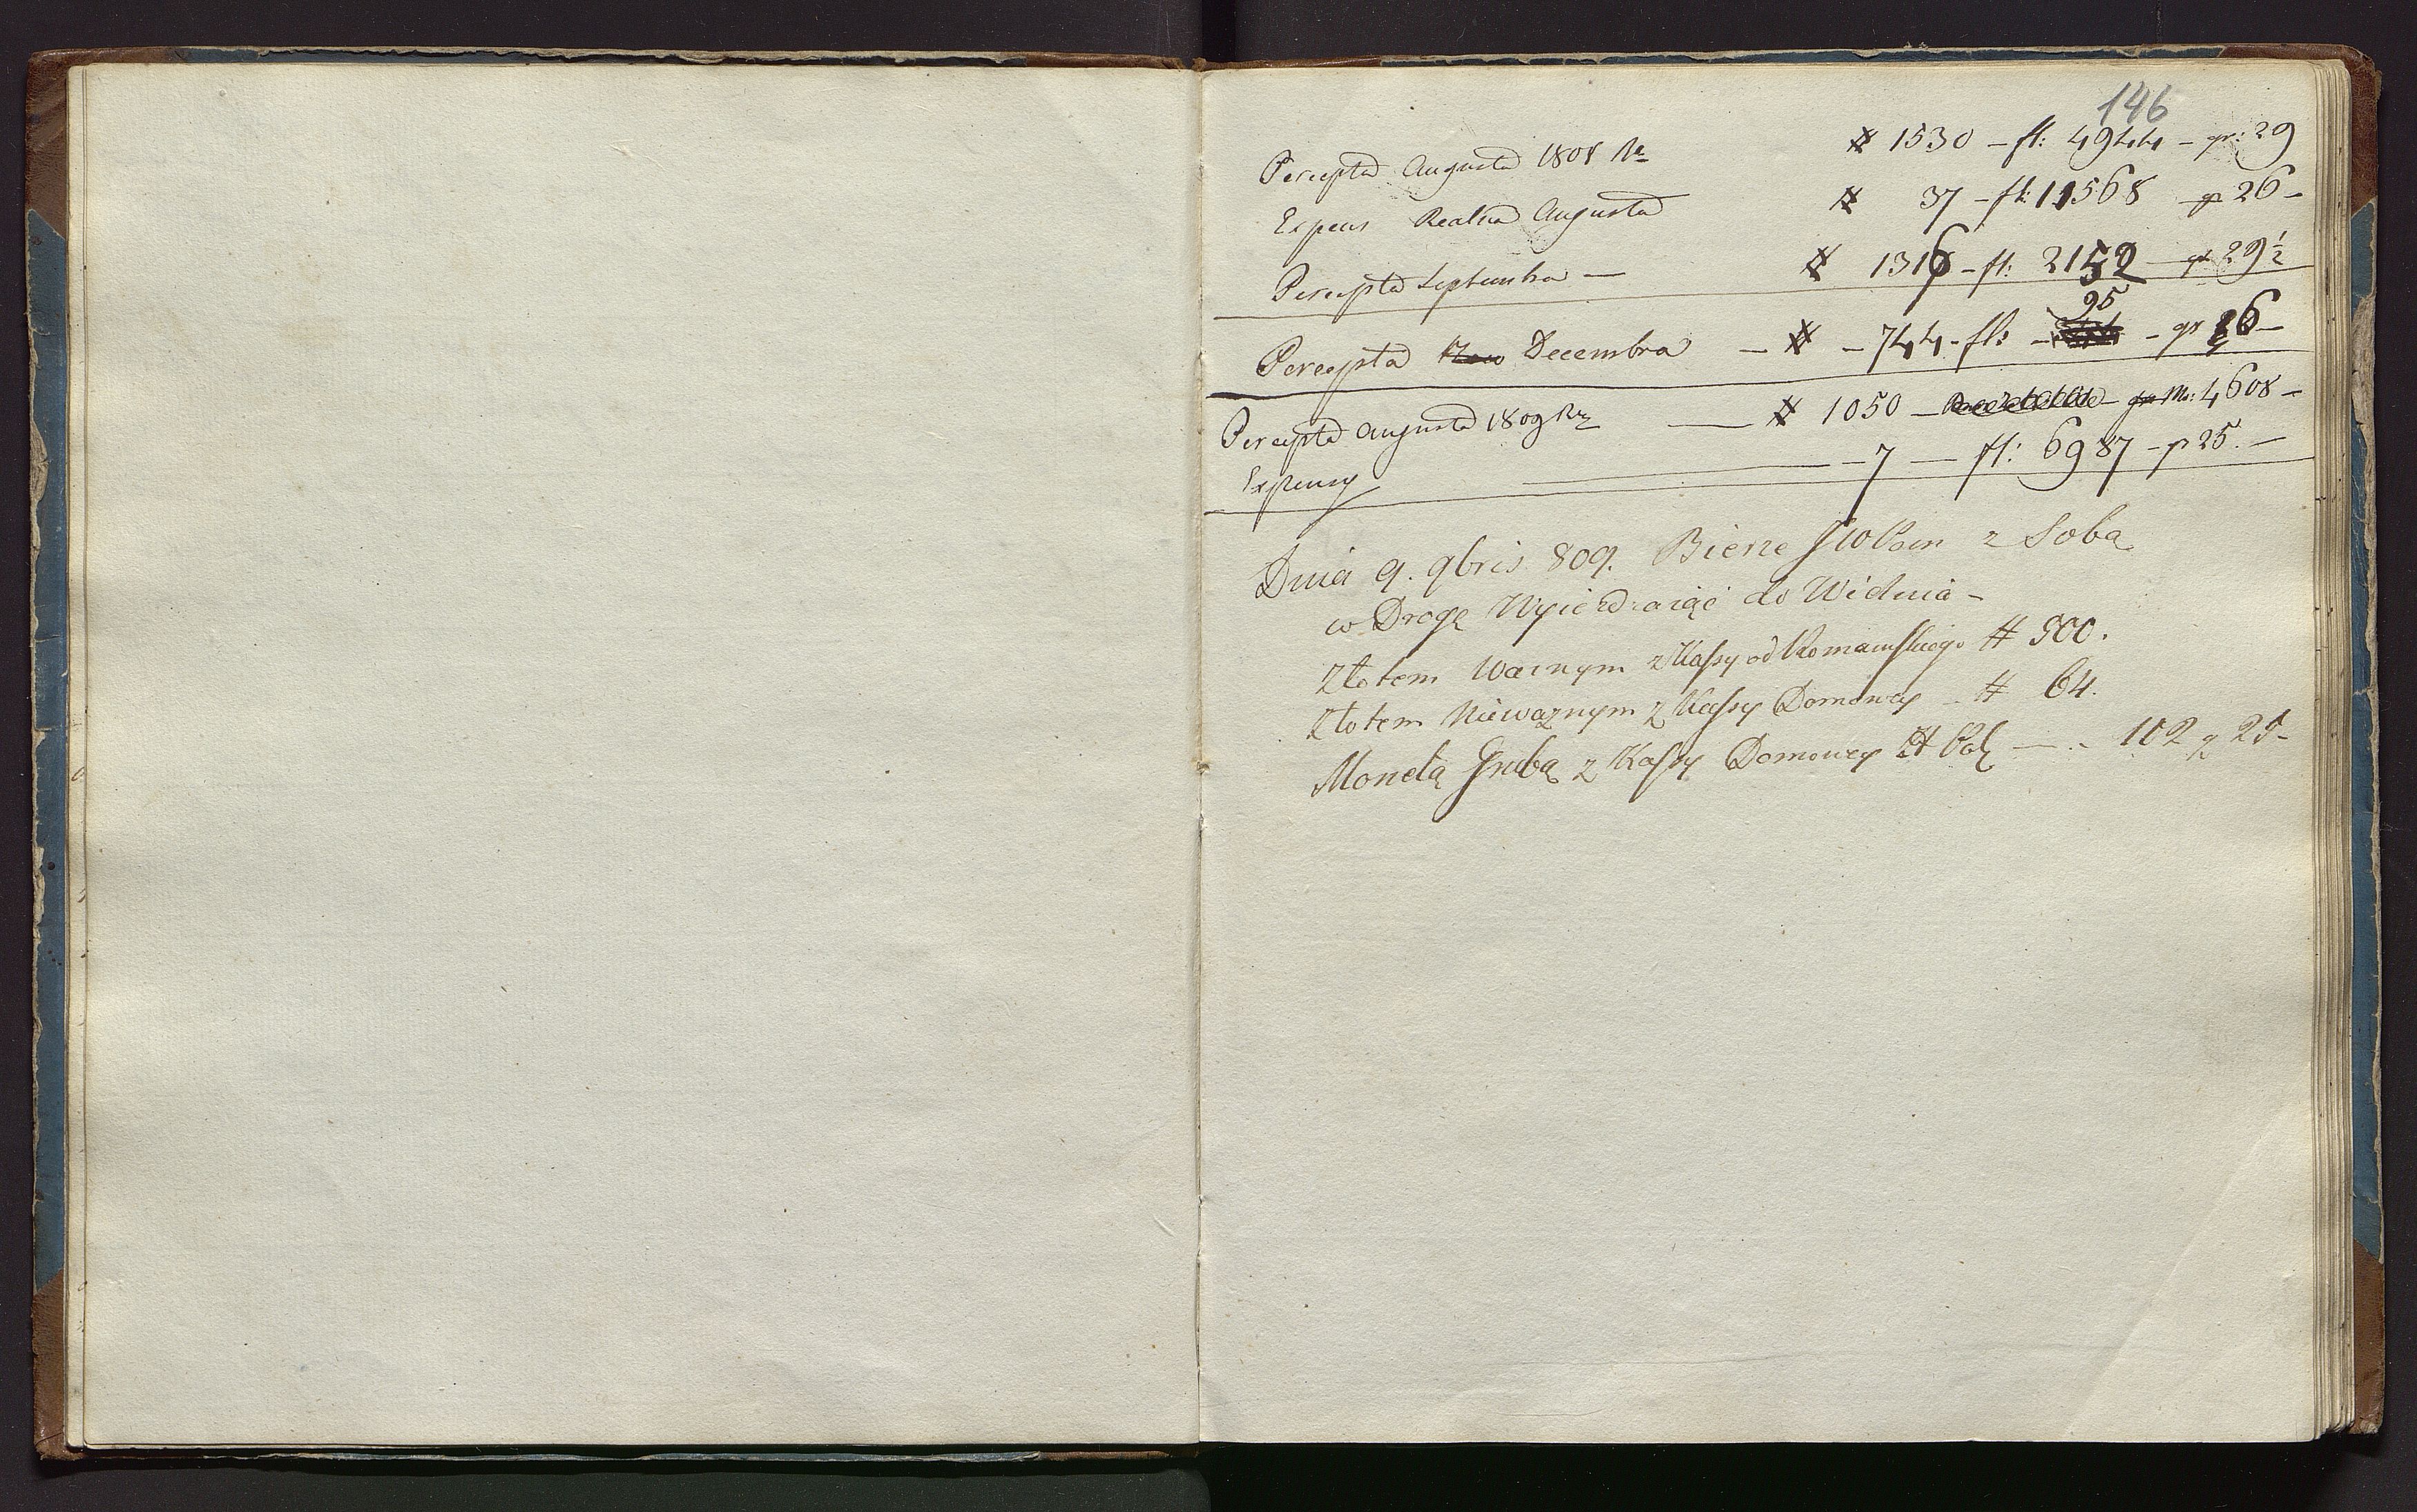 146
Percepta Augusta 1808 # 1530 – fl: 4944 – gr: 29
Expens Realna Augusta # 37 – fl: 11568 gr 26 –
Percepta Septembra — # 1316 – fl: 2152 – gr 29 1/2
95
Percepta Decembra — # – 744 – fl: – gr 26 –
Percepta Augusta 1809 — # 1050 – 4608 –
Expensy — 7 — fl: 6987 – gr 25. —
Dnia 9. 9bris 809. Bierze JWPan z Sobą
w Drogę Wyiezdzaiąć do Widnia –
Złotem Waznym z Kassy od Romanskiego # 500.
Złotem Niewaznym z Kassy Domowey – # 64.
Monetą Grubą z Kassy Domowey — 102 g 25 –